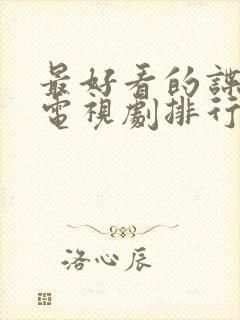 最好看的諜
電視劇排行
洛心辰